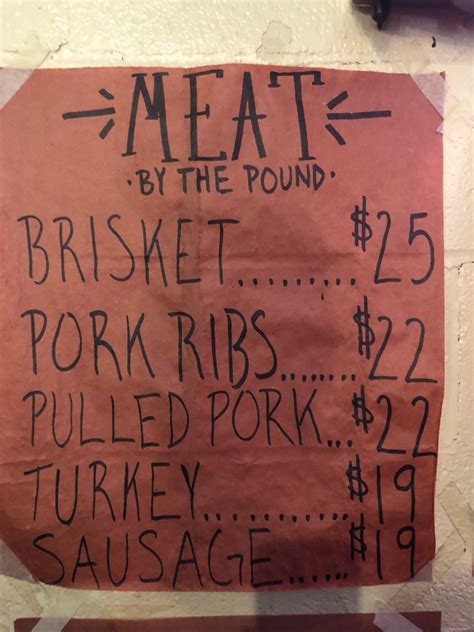 MEAT
·BY THE POUND·
BRISKET......... $25
PORK RIBS....... $22
PULLED PORK... $22
TURKEY.......... $19
SAUSAGE...... $19